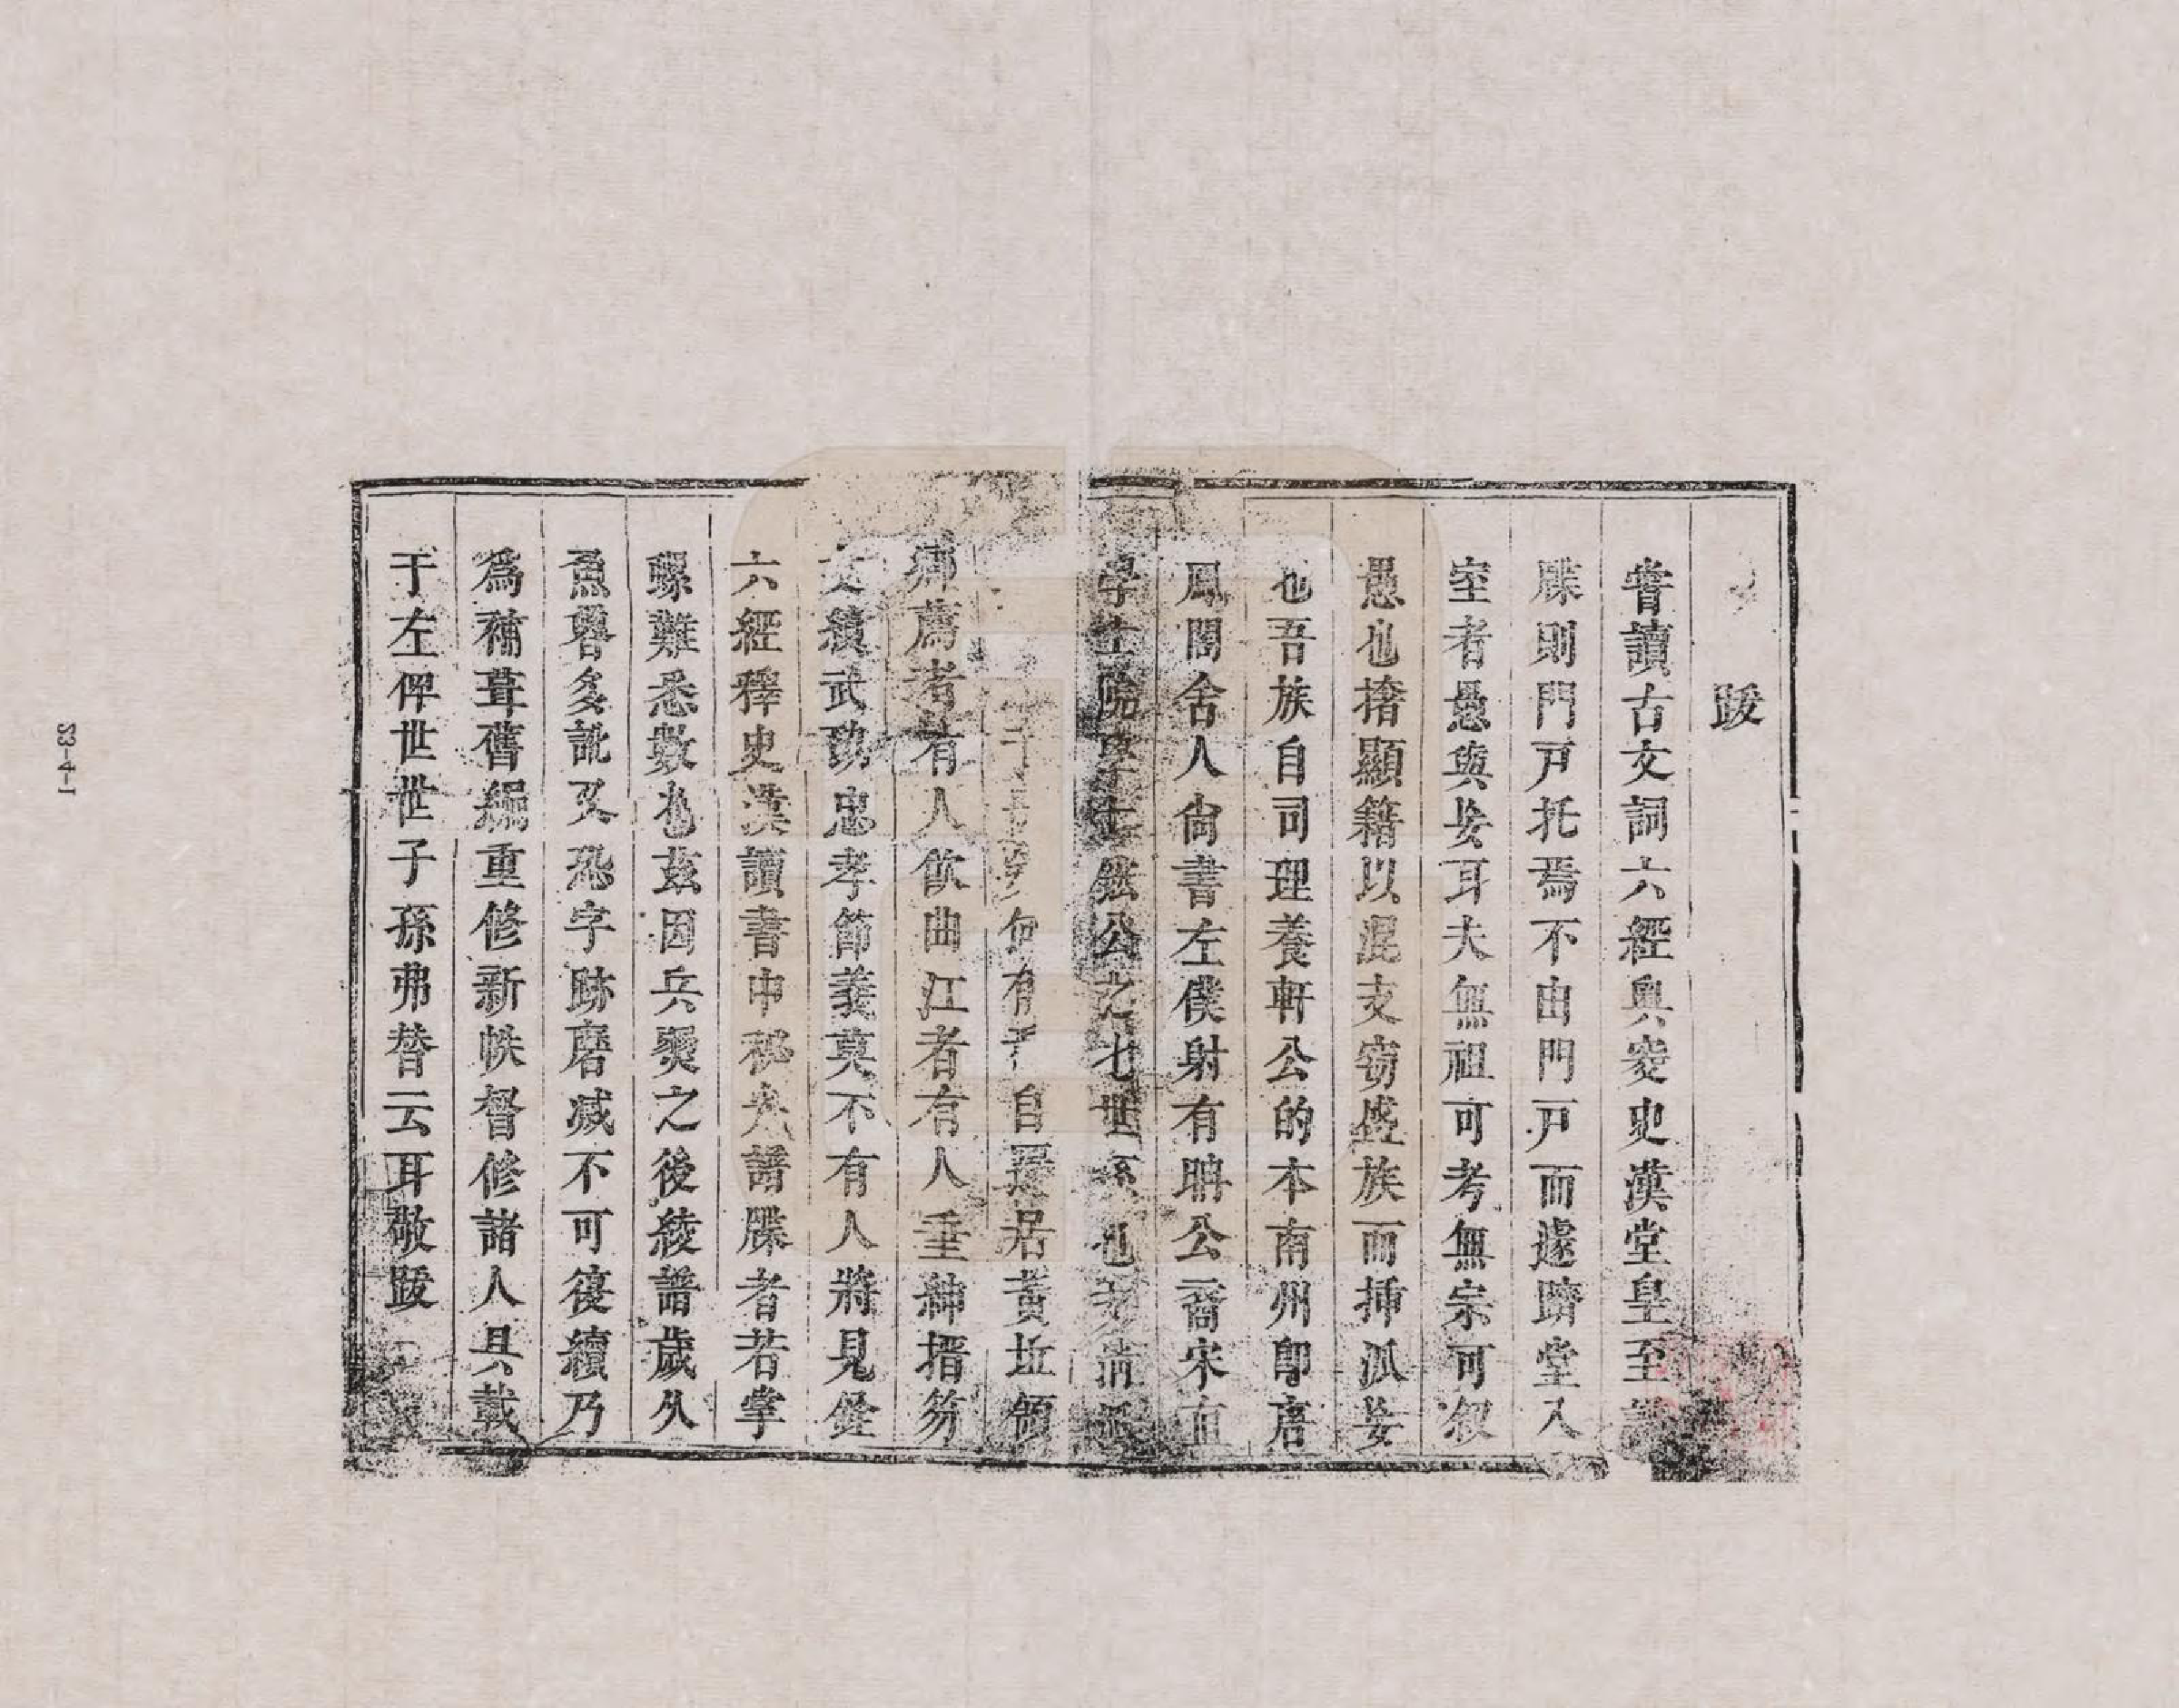 跋
嘗讀古文詞六經奥窔史漢堂皇至
牒則門戸托焉不由門戸而遽躋堂入
室者愚與妄耳夫無祖可考無宗可叙
愚也撦顯籍以混支窃盛族而挿派妄
也吾族自司理養軒公的本南州卽唐
鳳閣舍人尚書左僕射有聃公裔宋直
學士院學士鉉公之七世孫也
何有 自 居黄址領
鄉薦者有人飲曲江者有人垂紳搢笏
文績武功忠孝節義莫不有人將見詮
六經釋史漢讀書中秘矢譜牒者若掌
螺難悉數也兹因兵燹之後綾譜歲久
魚魯多訛又恐字跡磨减不可復續乃
為補葺舊編重修新帙督修諸人具載
于左俾世世子孫弗替云耳敬跋
S3-4-1